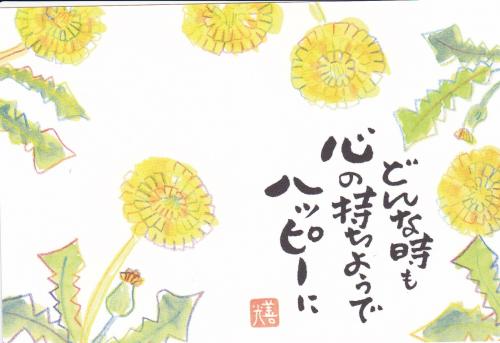 どんな時も
心の持ちようで
ハッピーに